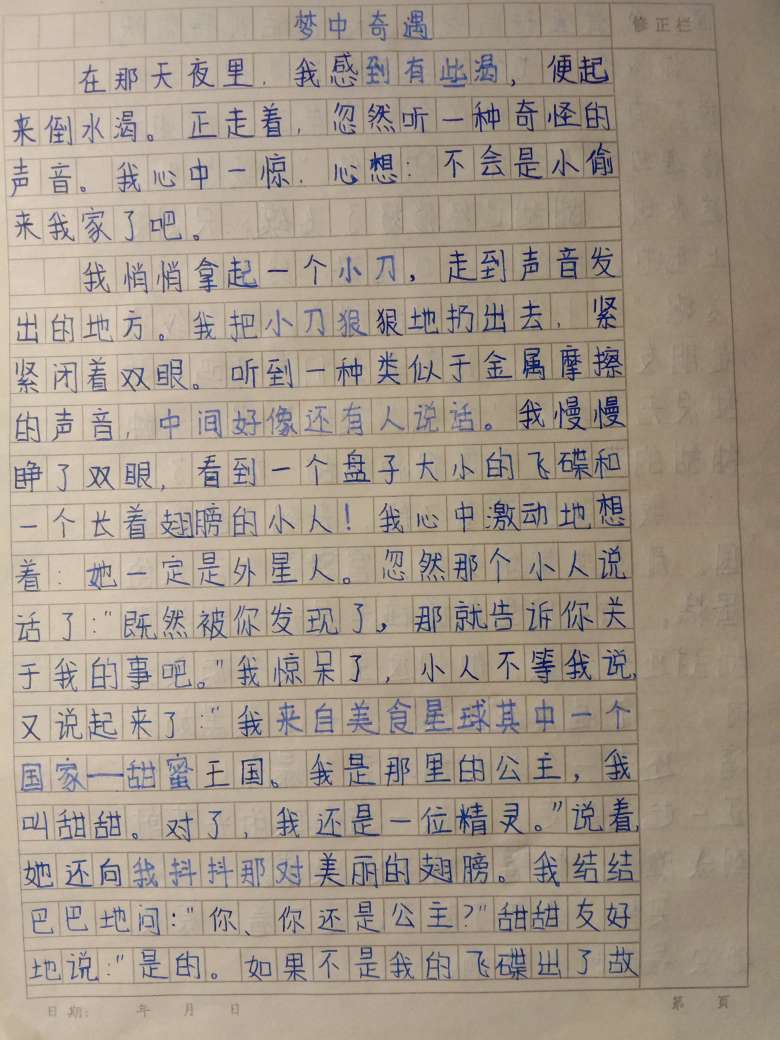 梦中奇遇
修正栏
在那天夜里，我感到有些渴，便起
来倒水渴。正走着，忽然听一种奇怪的
声音。我心中一惊，心想：不会是小偷
来我家了吧。
我悄悄拿起一个小刀，走到声音发
出的地方。我把小刀狠狠地扔出去，紧
紧闭着双眼。听到一种类似于金属摩擦
的声音，中间好像还有人说话。我慢慢
睁了双眼，看到一个盘子大小的飞碟和
一个长着翅膀的小人！我心中激动地想
着：她一定是外星人。忽然那个小人说
话了：“既然被你发现了，那就告诉你关
于我的事吧。”我惊呆了，小人不等我说，
又说起来了：“我来自美食星球其中一个
国家——甜蜜王国。我是那里的公主，我
叫甜甜。对了，我还是一位精灵。”说着，
她还向我抖抖那对美丽的翅膀。我结结
巴巴地问：“你、你还是公主？”甜甜友好
地说：“是的。如果不是我的飞碟出了故
日期： 年 月 日
第 页